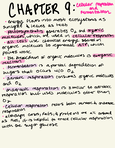 CHAPTER 9: Cellular Respiration
and Fermentation
- Energy flows into most ecosystems as
sunlight & leaves as heat
- Photosynthesis generates O₂ and organic
molecules, which are used in cellular respiration
- Cells use chemical energy stored in
organic molecules to generate ATP, which
powers work
- The breakdown of organic molecules is exergonic
- Fermentation is a partial degradation of
sugars that occurs w/o O₂
- Aerobic respiration consumes organic molecules
and O₂
- Anaerobic respiration is similar to aerobic
respiration but uses molecules other than
O₂
- Cellular respiration includes both aerobic & anaerobic
respiration
- carbs, fats, & proteins are all
used to
with the sugar glucose